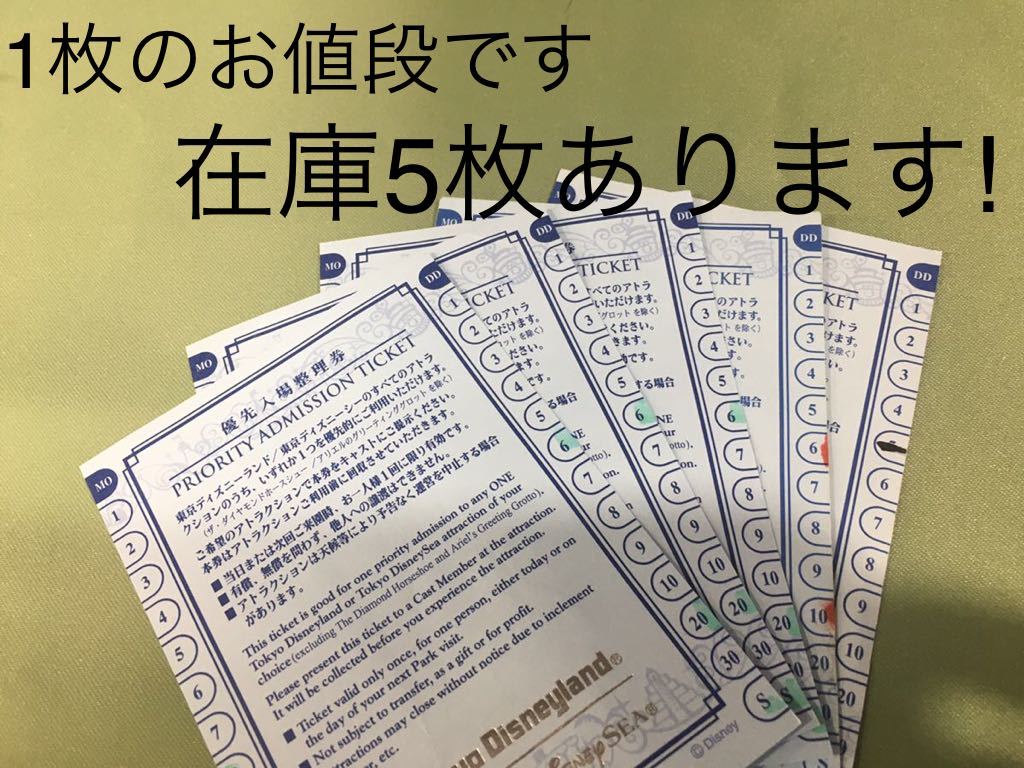 1枚のお値段です
在庫5枚あります!
MO
DD
優先入場整理券
PRIORITY ADMISSION TICKET
東京ディズニーランド/東京ディズニーシーのすべてのアトラ
クションのうち、いずれか1つを優先的にご利用いただけます。
(ザ・ダイヤモンドホースシュー/アリエルのグリーティンググロットを除く)
ご希望のアトラクションで本券をキャストにご提示ください。
本券はアトラクションご利用前に回収させていただきます。
■ 当日または次回ご来園時、お一人様1回に限り有効です。
■ 有償、無償を問わず、他人への譲渡はできません。
■ アトラクションは天候等により予告なく運営を中止する場合
があります。
This ticket is good for one priority admission to any ONE
Tokyo Disneyland or Tokyo DisneySea attraction of your
choice (excluding The Diamond Horseshoe and Ariel's Greeting Grotto).
Please present this ticket to a Cast Member at the attraction.
It will be collected before you experience the attraction.
■ Ticket valid only once, for one person, either today or on
the day of your next Park visit.
■ Not subject to transfer, as a gift or for profit.
attractions may close without notice due to inclement
er, etc.
yo Disneyland®
DISNEY SEA®
© Disney
1
2
3
4
5
6
7
1
2
3
4
5
6
7
8
9
10
20
30
S